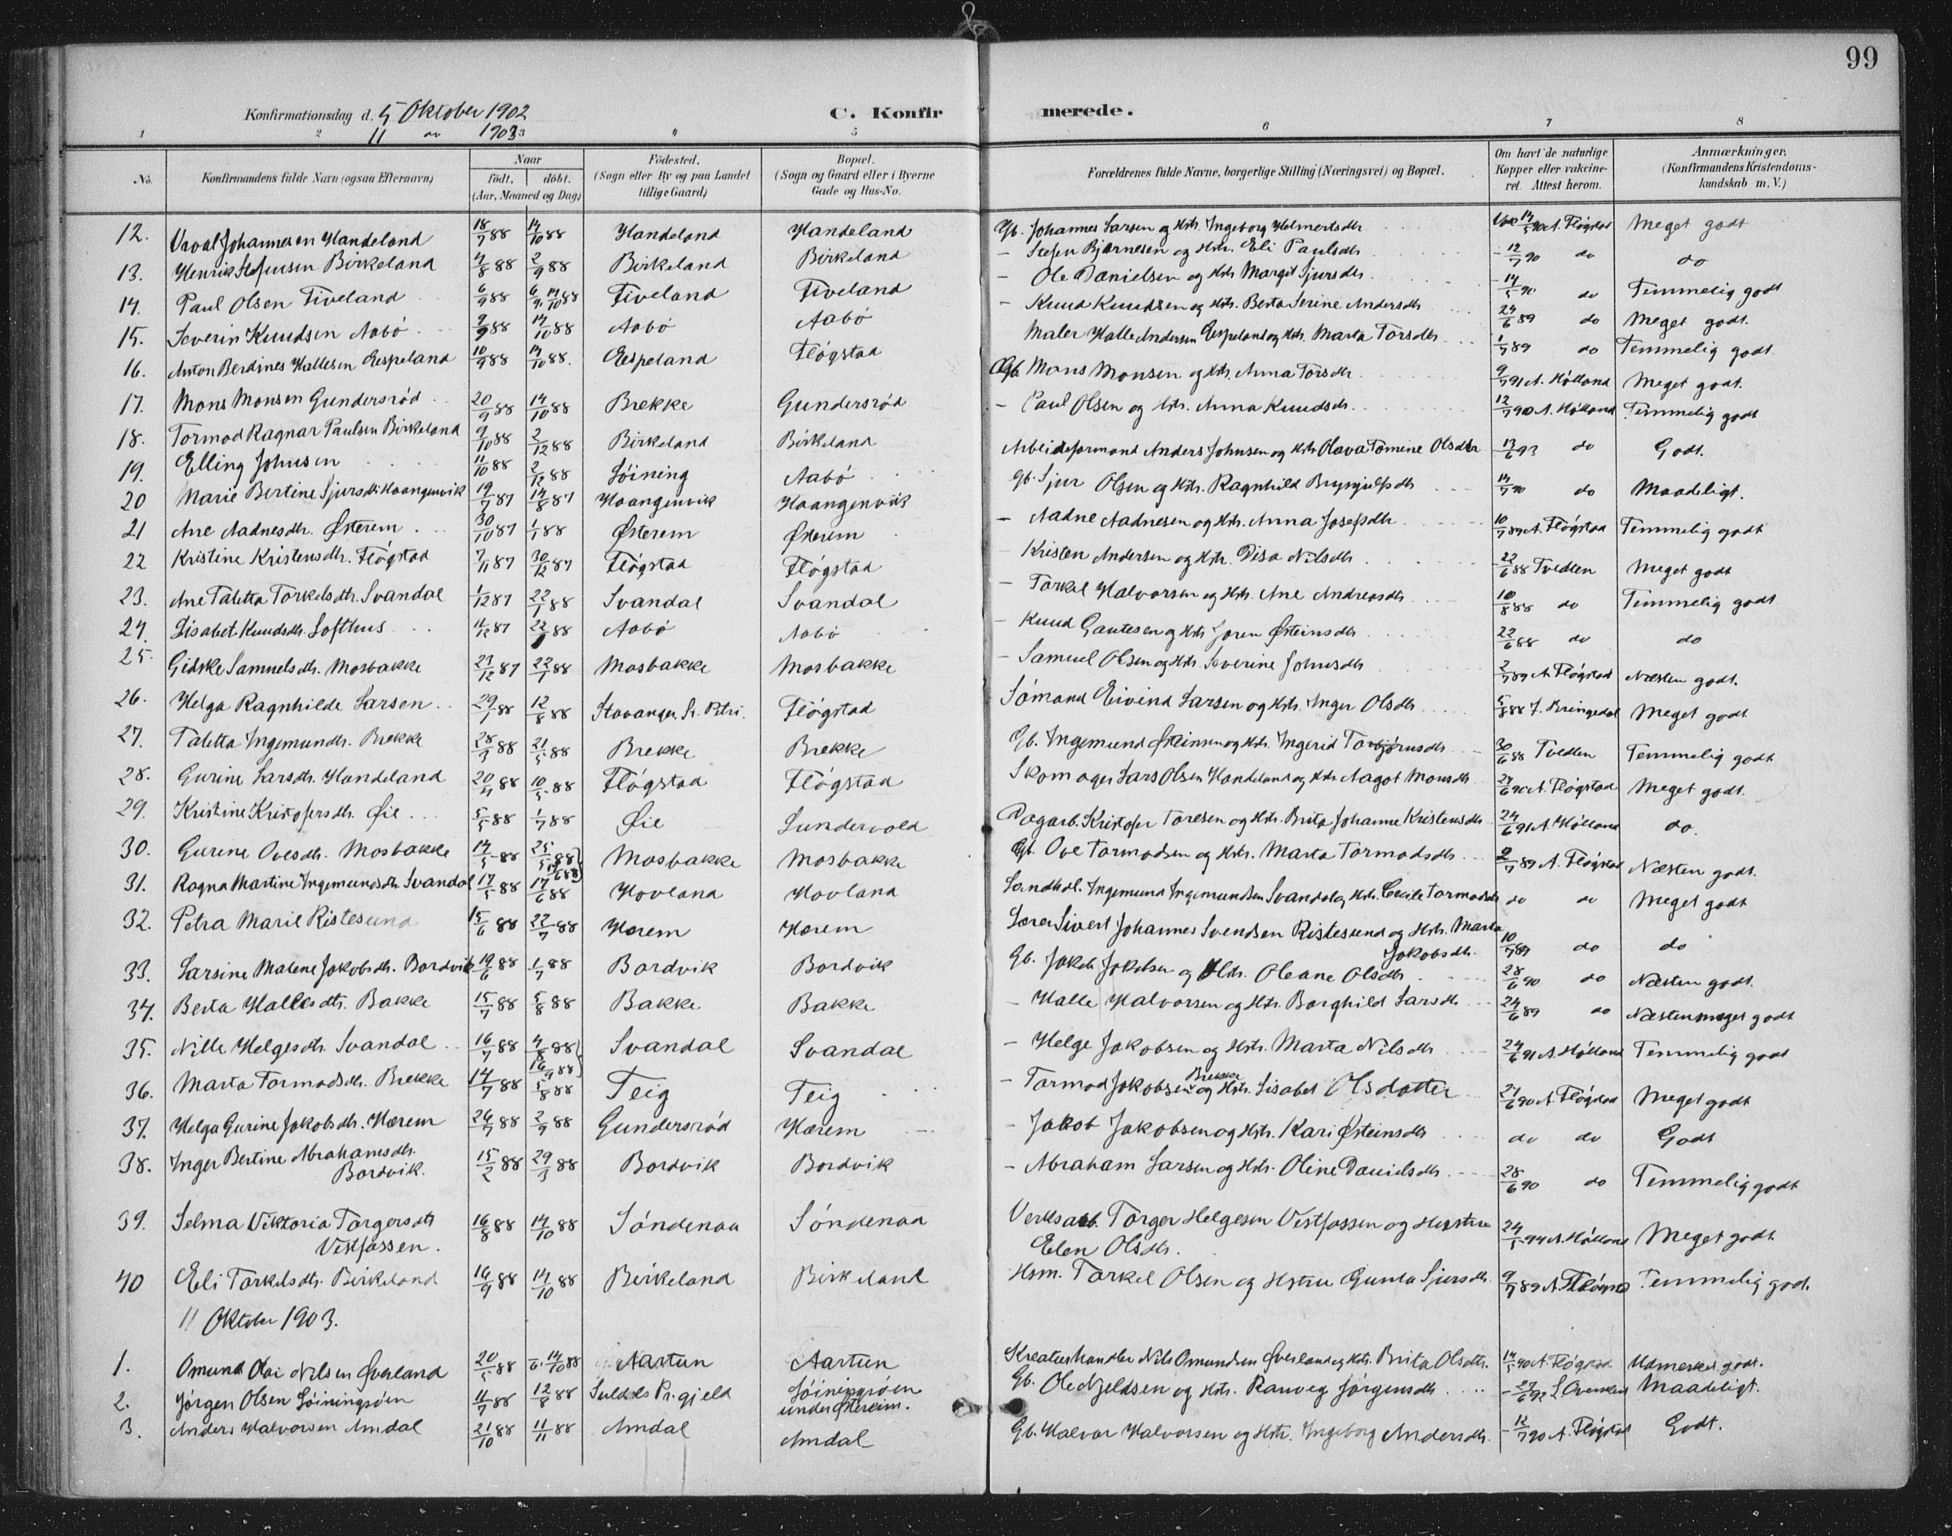 99
Konfirmationsdag d. 5 Oktober 1902
11 " 1903
C. Konfirmerede.
1 2 3 4 5 6 7 8
No.
Konfirmandens fulde Navn (ogsaa Efternavn)
Naar
født. døbt.
(Aar, Maaned og Dag)
Fødested.
(Sogn eller By og paa Landet tillige Gaard)
Bopæl.
(Sogn og Gaard eller i Byerne Gade og Hus-No.
Forældrenes fulde Navne, borgerlige Stilling (Næringsvei) og Bopæl.
Om havt de naturlige Kopper eller vakcineret. Attest herom.
Anmærkninger.
(Konfirmandens Kristendomskundskab m. V.)
12. Johannesen Handeland 18/7 88 14/10 88 Handeland Handeland Gb. Johannes Larsen og Hstr. Ingeborg Helmertsdtr A. Fløgstad Meget godt
13. Henrik Stefensen Birkeland 4/8 88 2/9 88 Birkeland Birkeland – Stefen Bjørnesen og Hstr. Eli Paulsdtr - 12/7 90 do do
14. Paul Olsen Tiveland 6/9 88 14/10 88 Tiveland Tiveland – Ole Danielsen og Hstr Margit Sjursdtr - 14/5 90 do Temmelig godt
15. Severin Knudsen Aabø 9/9 88 14/10 88 Aabø Aabø – Knud Knudsen og Hstr. Berta Serine Andersdtr 24/6 89 do Meget godt.
16. Anton Berdines Hallesen Eespeland 10/9 88 14/10 88. Eespeland Fløgstad Maler Halle Andersen Eespeland og Hstr. Marta Torsdtr 1/7 89 do Temmelig godt
17. Mons Monsen Gundersrød 20/9 88 14/10 88 Brekke Gundersrød Gb. Mons Monsen og Hstr. Anna Torsdtr 9/7 91 A. Hølland Meget godt.
18. Tormod Ragnar Paulsen Birkeland 9/10 88 2/12 88 Birkeland Birkeland – Paul Olsen og Hstr. Anna Knudsdtr. 12/7 90 A. Hølland Temmelig godt
19. Elling Johnsen 11/10 88 2/12 88 Søining Aabø Arbeidsformand Anders Johnsen og Hstr Olava Tomine Olsdtr 13/6 93 do Godt.
20 Marie Bertine Sjursdtr Haangenvik 19/7 87 14/8 87 Haangenvik Haangenvik Gb. Sjur Olsen og Hstr. Ragnhild Brynjulfsdtr 14/7 90 do Maadeligt.
21 Ane Aadnesdtr. Østerem 30/10 87 1/1 88 Østerem Østerem – Aadne Aadnesen og Hstr. Anna Josefsdtr 10/7 89 A. Fløgstad Temmelig godt
22 Kristine Kristensdtr. Fløgstad 7/11 87 30/12 87 Fløgstad Fløgstad – Kristen Andersen og Hstr. Disa Nilsdtr 22/6 88 Tvedten Meget godt
23. Ane Taletta Torkelsdtr. Svandal 1/12 87 22/1 88 Svandal Svandal – Torkel Halvorsen og Hstr. Ane Andreasdtr 10/8 88 do Temmelig godt
24. Lisabet Knudsdtr. Lofthus 11/12 87 22/1 88 Aabø Aabø – Knud Gautesen og Hstr Joren Østeinsdtr 22/6 88 do do
25. Gidske Samuelsdtr. Mosbakke 23/12 87 22/1 88 Mosbakke Mosbakke – Samuel Olsen og Hstr. Severine Johnsdtr 2/7 89 A. Fløgstad Næsten godt.
26. Helga Ragnhilde Larsen 29/1 88 12/8 88 Stavanger St. Petri. Fløgstad Sømand Eivind Larsen og Hstr. Inger Olsdtr 5/8 88 J. Bringedal Meget godt
27. Taletta Ingemundtr. Brekke 28/3 88 21/5 88 Brekke Brekke Gb. Ingemund Østeinsen og Hstr. Ingerid Torbjørnsdtr 30/6 88 Tvedten Temmelig godt
28. Gurine Larsdtr. Handeland 20/4 88 10/5 88 Fløgstad Fløgstad Skomager Lars Olsen Handeland og Hstr Aagot Monsdtr 24/6 90 A. Fløgstad Meget godt.
29. Kristine Kristofersdtr. Øie 5/5 88 1/7 88 Øie Sundevold Dagarb. Kristofer Toresen og Hstr. Brita Johanne Kristensdtr 24/6 91 A. Hølland do.
30. Gurine Ovesdtr. Mosbakke 14/5 88 25/5 88 Mosbakke Mosbakke Gb. Ove Tormodsen og Hstr. Marta Tormodsdtr 2/7 89 A. Fløgstad Næsten godt.
31. Ragna Martine Ingemundsdtr. Svandal 17/5 88 17/6 88 Hovland Hovland Landhdl. Ingemund Ingemundsen Svandal og Hstr. Cecilie Tormodsdtr do do Meget godt
32. Petra Marie Ristesund 15/6 88 22/7 88 Hærem Hærem Lærer Sivert Johannes Svendsen Ristesund og Hstr. Marta Jakobsdtr. 10/7 89 do do
33. Larsine Malene Jakobsdtr. Bordvik 19/6 88 1/7 88 Bordvik Bordvik Gb. Jakob Jakobsen og Hstr. Oleane Olsdtr 28/6 90 do Næsten godt.
34. Berta Hallesdtr. Bakke 15/7 88 5/8 88 Bakke Bakke – Halle Halvorsen og Hstr. Borghild Larsdtr 24/6 89 do Næsten meget godt
35. Nille Helgesdtr. Svandal 16/7 88 4/8 88 16/9 88 Svandal Svandal – Helge Jakobsen og Hstr. Marta Nilsdtr 24/6 91 A. Hølland Temmelig godt
36. Marta Tormodsdtr. Brekke 14/7 88 5/8 88 Teig Teig – Tormod Jakobsen Brekke og Hstr. Lisabet Olsdatter 21/6 90 A. Fløgstad Meget godt
37. Helga Gurine Jakobsdtr. Hærem 26/7 88 2/9 88 Gundersrød Hærem – Jakob Jakobsen og Hstr. Kari Østeinsdtr do do Godt
38. Inger Bertine Abrahamsdtr. Bordvik. 15/2 88 29/3 88 Bordvik Bordvik – Abraham Larsen og Hstr. Oline Danielsdtr 28/6 90 do Temmelig godt
39. Selma Viktoria Torgersdtr Vestfossen. 16/8 88 14/10 88 Søndenaa Søndenaa Verksarb. Torger Helgesen Vestfossen og Hustru Elen Olsdtr. 24/5 94 A. Hølland Meget godt
40 Eli Torkelsdtr. Birkeland 16/9 88 14/10 88 Birkeland Birkeland Hsm. Torkel Olsen og Hstru Gunla Sjursdtr 9/7 89 A. Fløgstad Temmelig godt.
11 Oktober 1903.
1. Omund Olai Nilsen Øverland 20/5 88 14/10 88 Aartun Aartun Kreaturhandler Nils Omundsen Øverland og Hstr. Brita Olsdtr. 14/5 90 A. Fløgstad Udmerket godt.
2. Jørgen Olsen Søiningsøen 11/7 88 12/8 88 Suldals Pr.gjeld Søiningsøen under Østereim. Gb. Ole Njeldsen og Hstr. Ranveg Jørgensdtr - 27/6 92 Maadeligt.
3. Anders Halvorsen Amdal 21/10 88 11/11 88 Amdal Amdal Gb. Halvor Halvorsen og Hstr. Ingeborg Andersdtr. - 12/7 90 A. Fløgstad Godt.